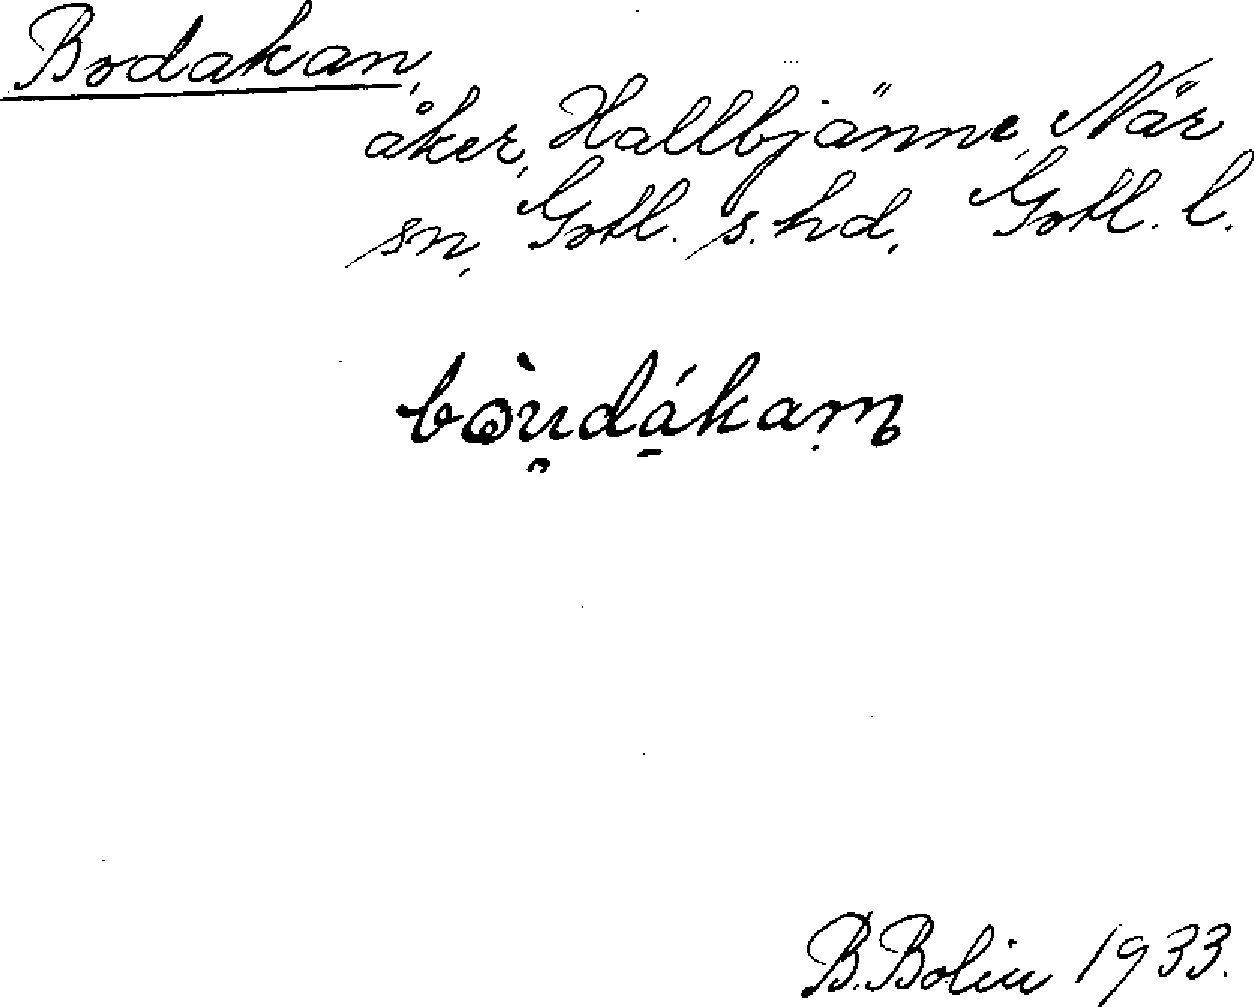 Bodakan,
åker, Hallbjänne, När
sn, Gotl. s. hd, Gotl. l.
bòudákam
B. Bolin 1933.